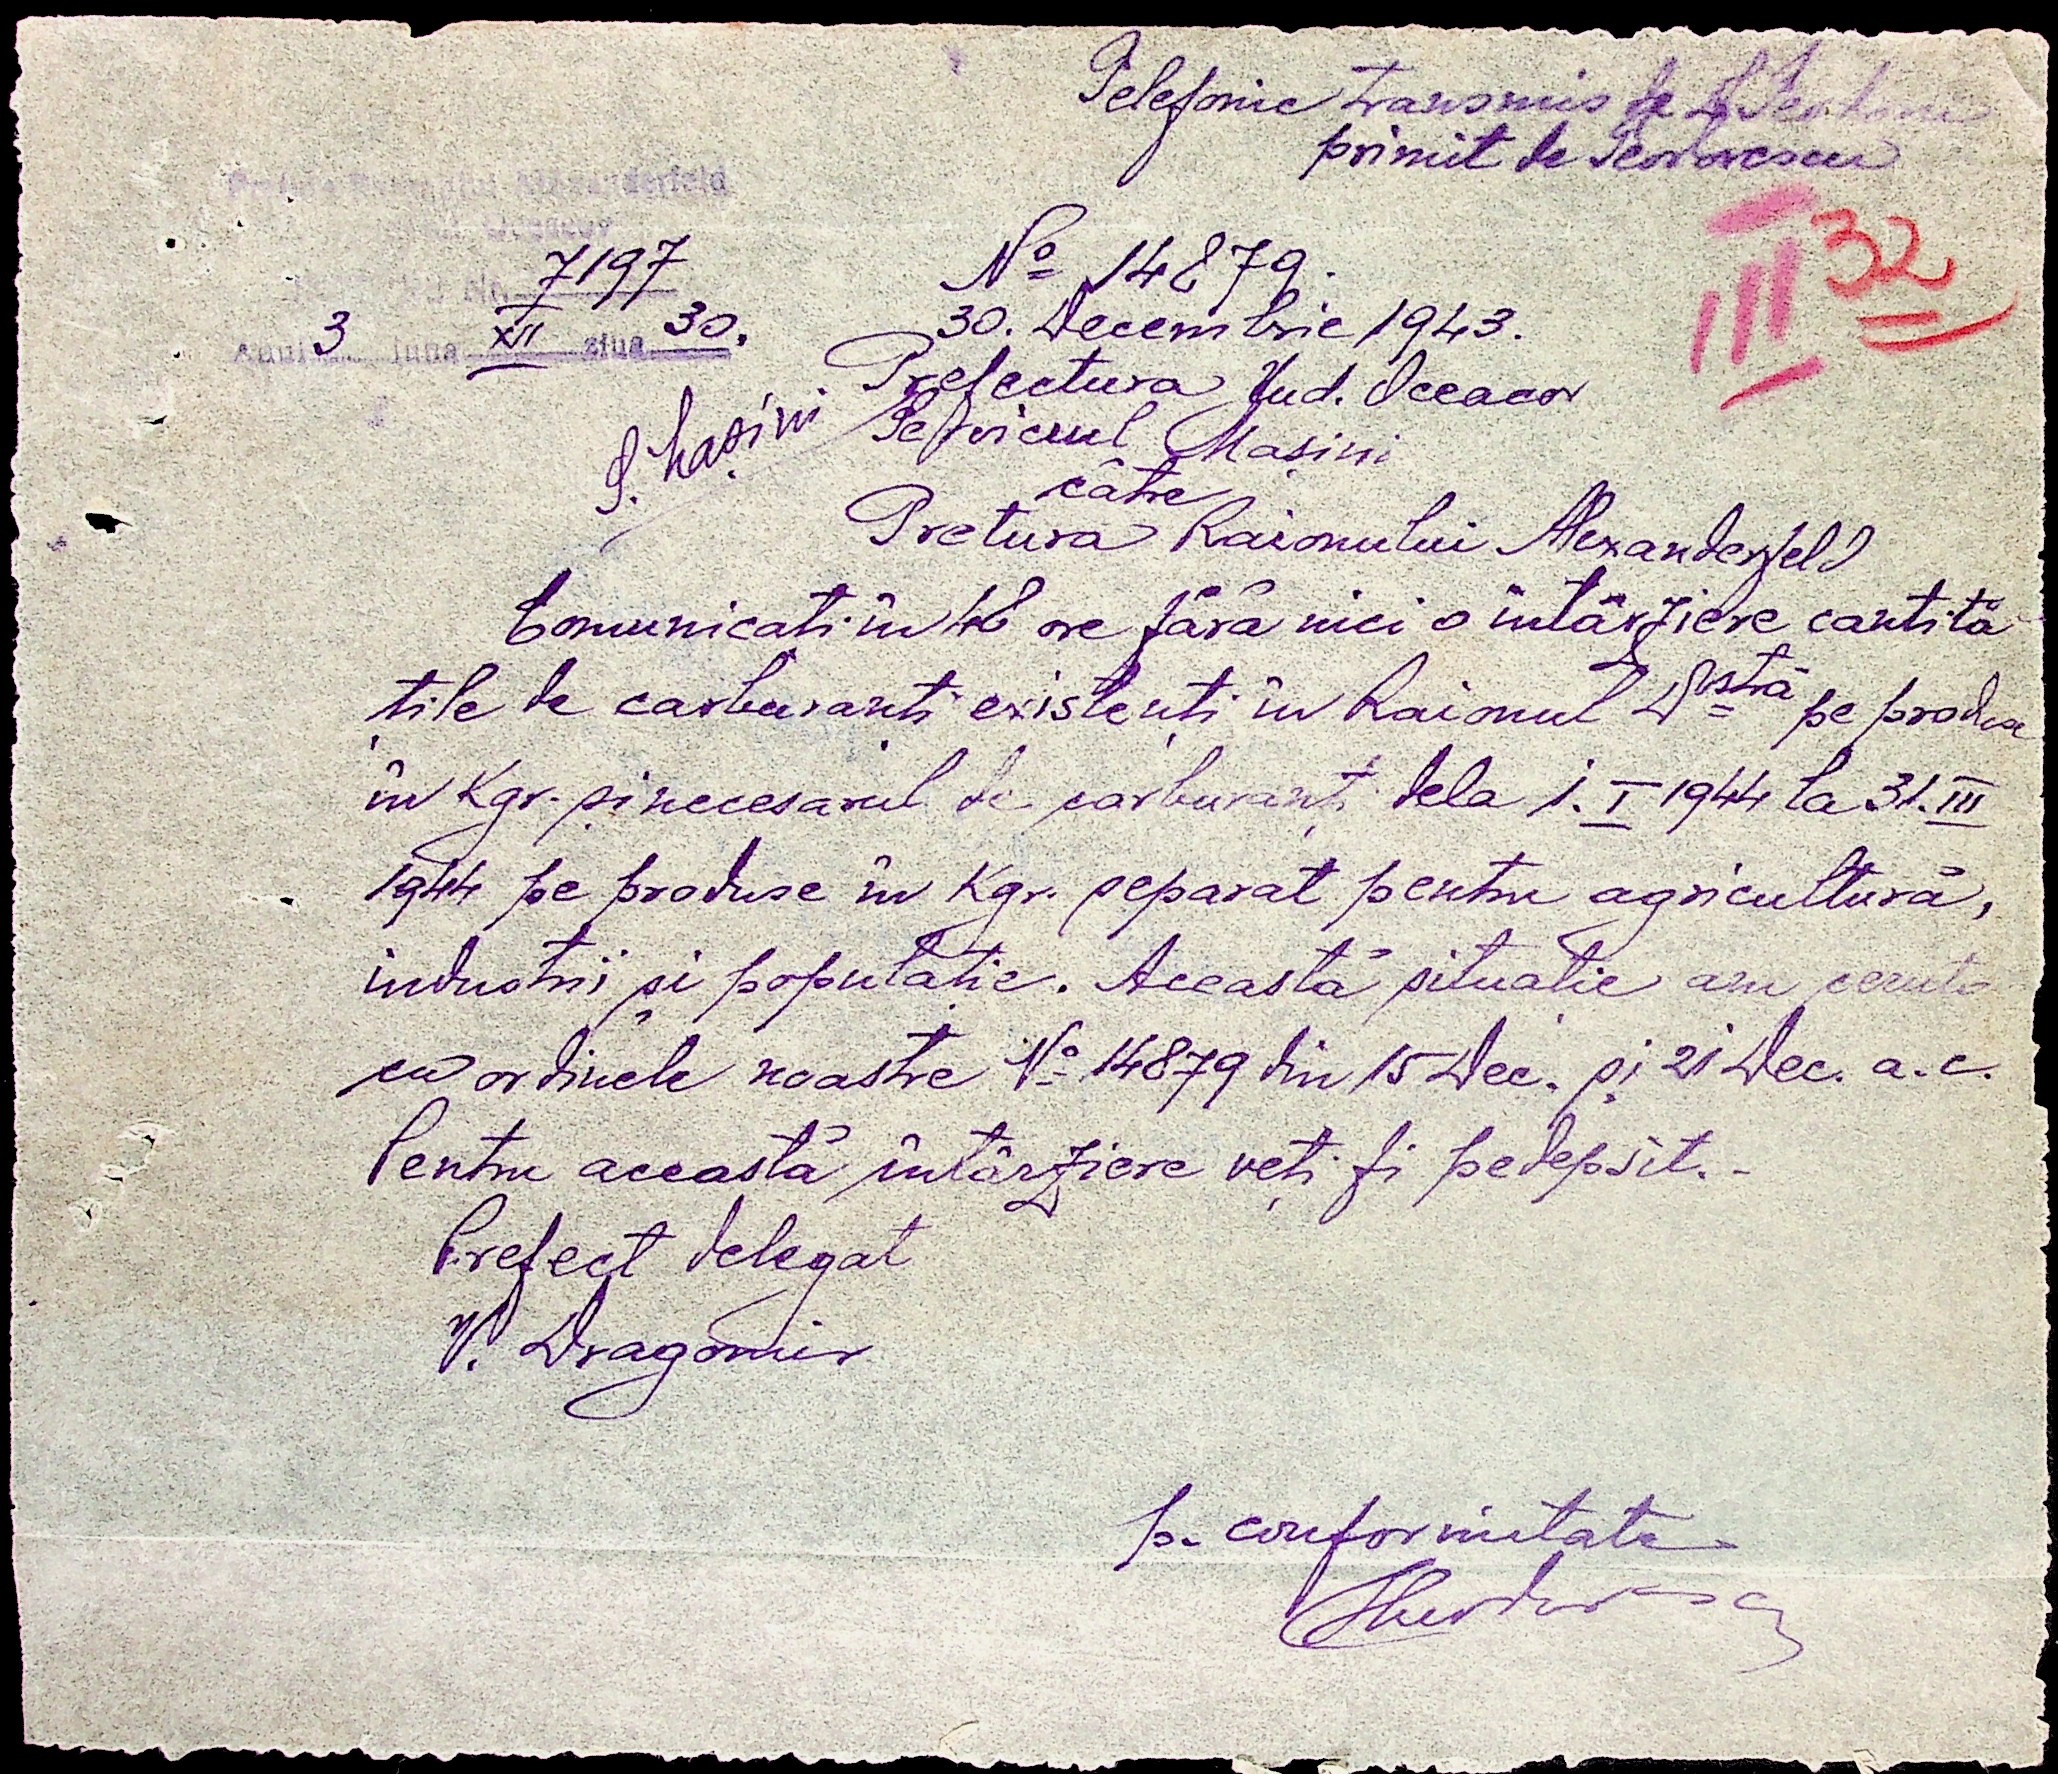 Telefonic transmis de
primit de Teodorescu
Pretura Raionului Alexanderfeld
Jud. Oceacov
No. 7197
Anul 3 luna XII ziua 30.
III 32
No 14879.
30. Decembrie 1943.
Prefectura Jud. Oceacov
Serviciul Mașini
S. Mașini
către
Pretura Raionului Alexanderfeld
Comunicați în 48 ore fără nici o întârziere cantită
țile de carburanți existenți în Raionul Dvstră pe produse
în Kgr. și necesarul de carburanți dela 1.I 1944 la 31.III
1944 pe produse în Kgr. separat pentru agricultură,
industrii și populație. Această situație am cerut-o
cu ordinele noastre No 14879 din 15 Dec. și 21 Dec. a.c.
Pentru această întârziere veți fi pedepsit.-
Prefect delegat
V. Dragomir
p. conformitate